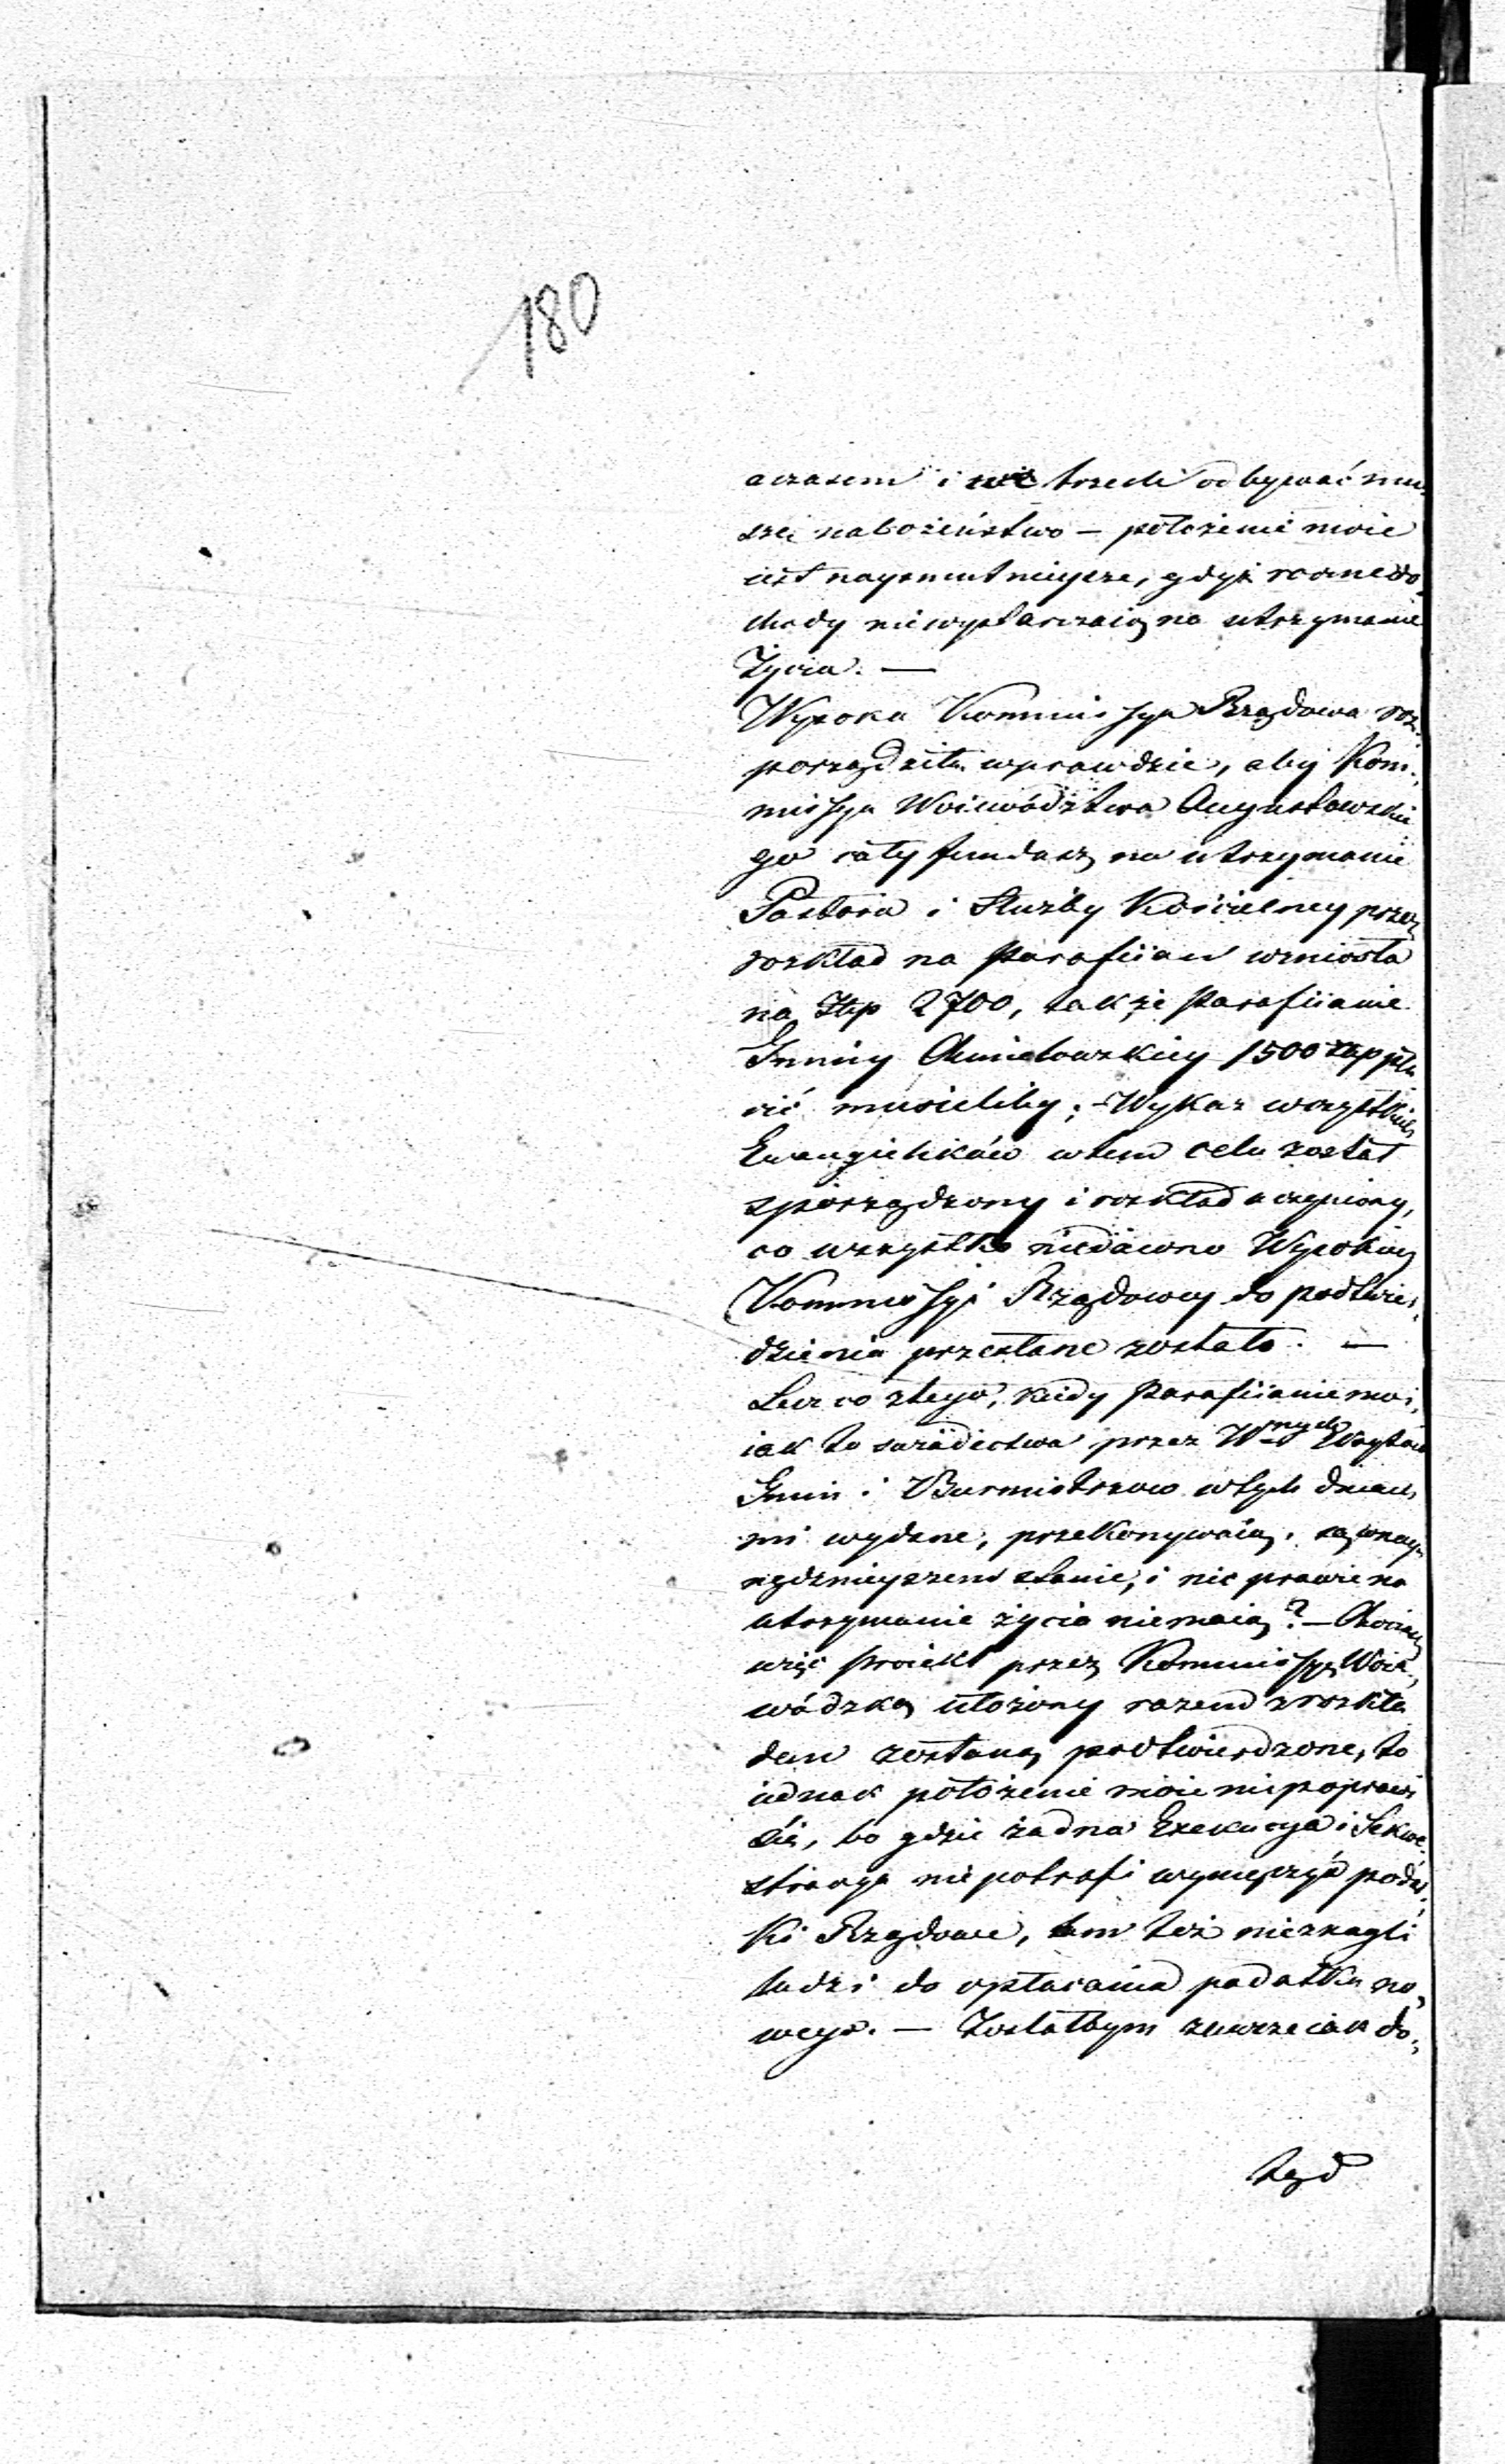 180
a czasem i we trzech odbywać mu-
szę nabożeństwo – położenie moie
iest naysmutnieysze, gdyż roczne do-
chody niewystarczaią na utrzymanie
Życia. —
Wysoka Kommissya Rządowa roz-
porządziła wprawdzie, aby Kom-
missya Woiewództwa Augustowskie
go cały fundusz na utrzymanie
Pastora i Służby Kościelney przez
rozkład na Parafiian wzniosła
na Złp 2700, także Parafiianie
Gminy Chmielowskiey 1500 złp pła
cić musieliby; – Wykaz wszystkich
Ewangielików w tem celu został
sporządzony i rozkład uczyniony,
co wszystko niedawno Wysokiey
Kommissyi Rządowey do potwier-
dzenia przesłane zostało. —
Lecz co z tego, kiedy Parafiianie moi,
iak to świadectwa przez Wnych Woytów
Gmin i Burmistrzow w tych dniach
mi wydane, przekonywaią, są w nay
nędznieyszem stanie, i nic prawie na
utrzymanie życia niemaią? – Chociaż
więc Proiekt przez Kommissyą Woie-
wódzką ułożony razem z rozkła
dem zostaną potwierdzone, to
iednak położenie moie niepoprawi
się, bo gdzie żadna Exekucya i Sekwe-
stracya nie potrafi wymęczyć podat-
ki Rządowe, tam też nieznagli
ludzi do opłacania podatku no-
wego. — Zostałbym zawsze iak do-
tąd